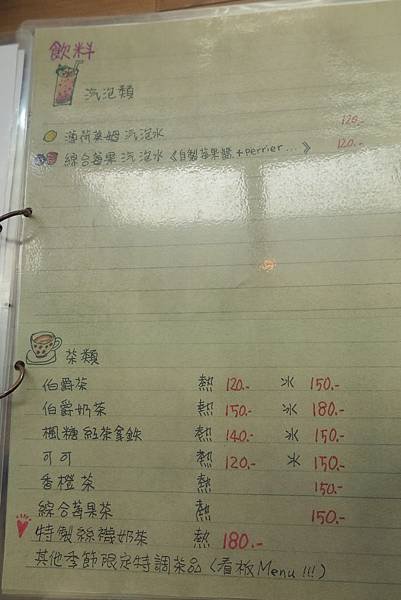 飲料
汽泡類
薄荷萊姆汽泡水 120.-
綜合莓果汽泡水《自製莓果醬+Perrier...》 120.-
茶類
伯爵茶 熱 120.- 冰 150.-
伯爵奶茶 熱 150.- 冰 180.-
楓糖紅茶拿鉄 熱 140.- 冰 150.-
可可 熱 120.- 冰 150.-
香橙茶 熱 150.-
綜合莓果茶 熱 150.-
特製絲襪奶茶 熱 180.-
其他季節限定特調茶品(看板Menu!!!)